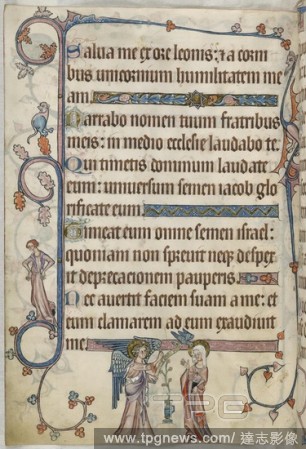 Salua me ex ore leonis: & a corni
bus unicornium humilitatem me
am
Narrabo nomen tuum fratribus
meis: in medio ecclesie laudabo te.
Qui timetis dominum laudate
eum: universum semen iacob glo
rificate eum
Timeat eum omne semen israel:
quoniam non sprevit neq; despex
it deprecacionem pauperis
Nec avertit faciem suam a me: et
cum clamarem ad eum exaudivit
me
TPG
www.tpgnews.com/ 達志影像